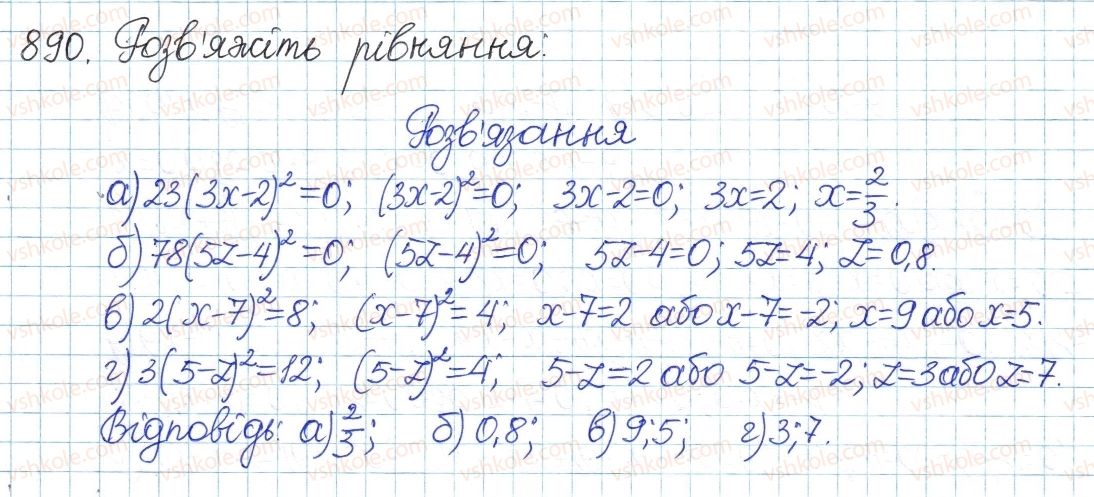 890. Розв'яжіть рівняння:
Розв'язання
а) 23(3x-2)²=0; (3x-2)²=0; 3x-2=0; 3x=2; x=2/3.
б) 78(5z-4)²=0; (5z-4)²=0; 5z-4=0; 5z=4; z=0,8.
в) 2(x-7)²=8; (x-7)²=4; x-7=2 або x-7=-2; x=9 або x=5.
г) 3(5-z)²=12; (5-z)²=4; 5-z=2 або 5-z=-2; z=3 або z=7.
Відповідь: а) 2/3; б) 0,8; в) 9; 5; г) 3; 7.